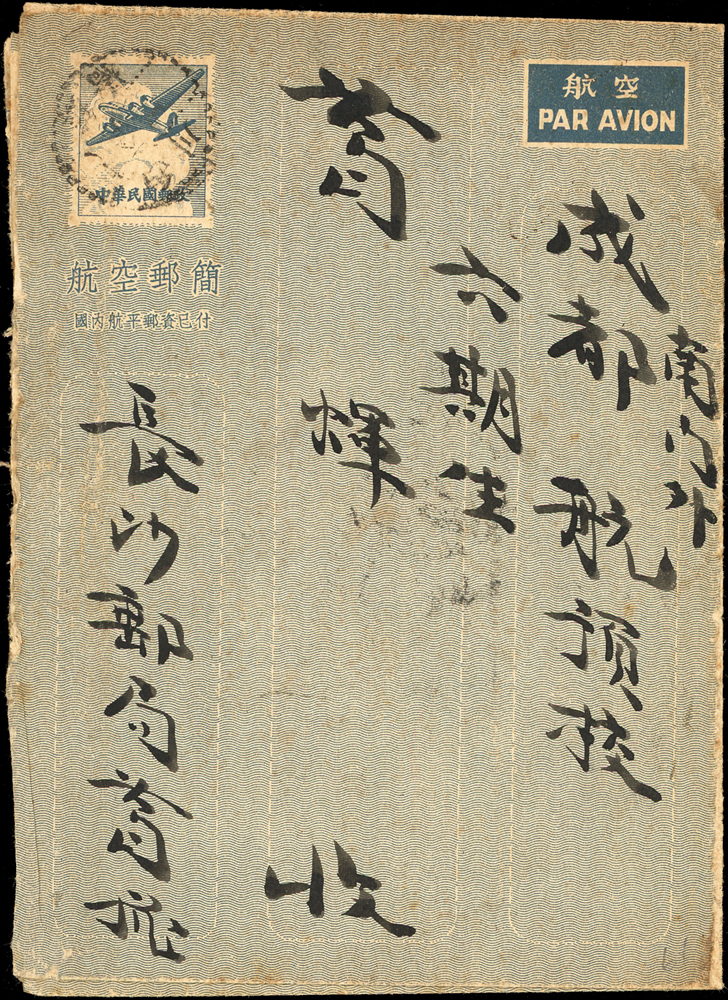 航空
PAR AVION
成都 航預校
南門外
六期生
葛 煇 收
中華民國郵政
航空郵簡
國內航平郵資已付
長沙郵局葛椛